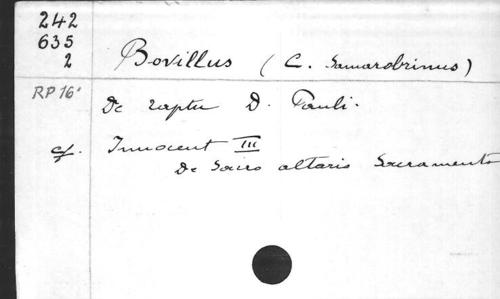 242
635
2
Bovillus (C. Samarobrinus)
RP 16°
De raptu D. Pauli.
cf. Innocent III
De Sacro altaris Sacramento